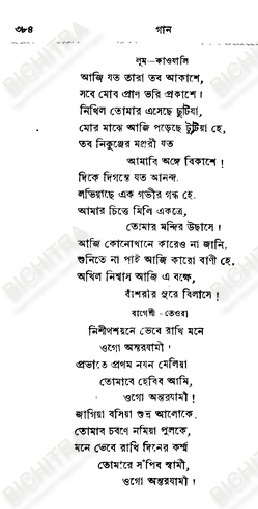 ৩৮৪ গান
লুম–কাওয়ালি
আজি যত তারা তব আকাশে,
সবে মোর প্রাণ ভরি প্রকাশে।
নিখিল তোমার এসেছে ছুটিয়া,
মোর মাঝে আজি পড়েছে টুটিয়া হে,
তব নিকুঞ্জের মঞ্জরী যত
আমারি অঙ্গে বিকাশে!
দিকে দিগন্তে যত আনন্দ
লভিয়াছে এক গভীর গন্ধ হে,
আমার চিত্তে মিলি একত্রে,
তোমার মন্দির উছাসে।
আজি কোনোখানে কারেও না জানি,
শুনিতে না পাই আজি কারো বাণী হে,
অখিল নিশ্বাস আজি এ বক্ষে,
বাঁশরীর সুরে বিলাসে!
বাগেশ্রী–তেওরা
নিশীথশয়নে ভেবে রাখি মনে
ওগো অন্তরযামী!
প্রভাতে প্রথম নয়ন মেলিয়া
তোমারে হেরিব আমি,
ওগো অন্তরযামী!
জাগিয়া বসিয়া শুভ্র আলোকে,
তোমার চরণে নমিয়া পুলকে,
মনে ভেবে রাখি দিনের কর্ম্ম
তোমারে সঁপিব স্বামী,
ওগো অন্তরযামী!
BICHITRA